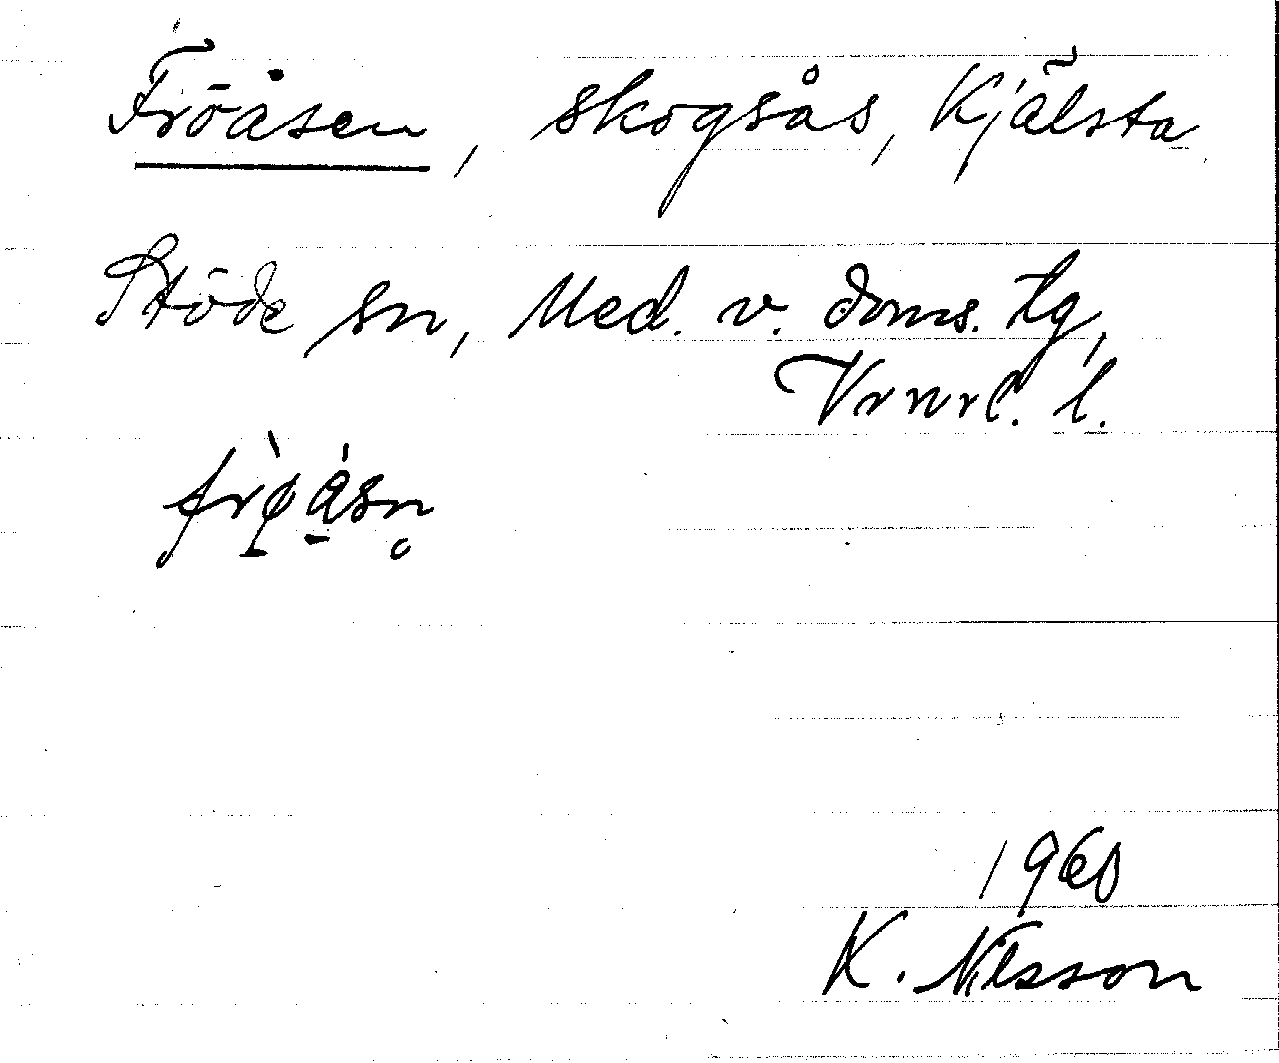 Fröåsen, skogsås, Kjälsta
Stöde sn, Med. v. doms. tg,
Vrnrl. l.
frø̀ásn̥
1960
K. Nilsson